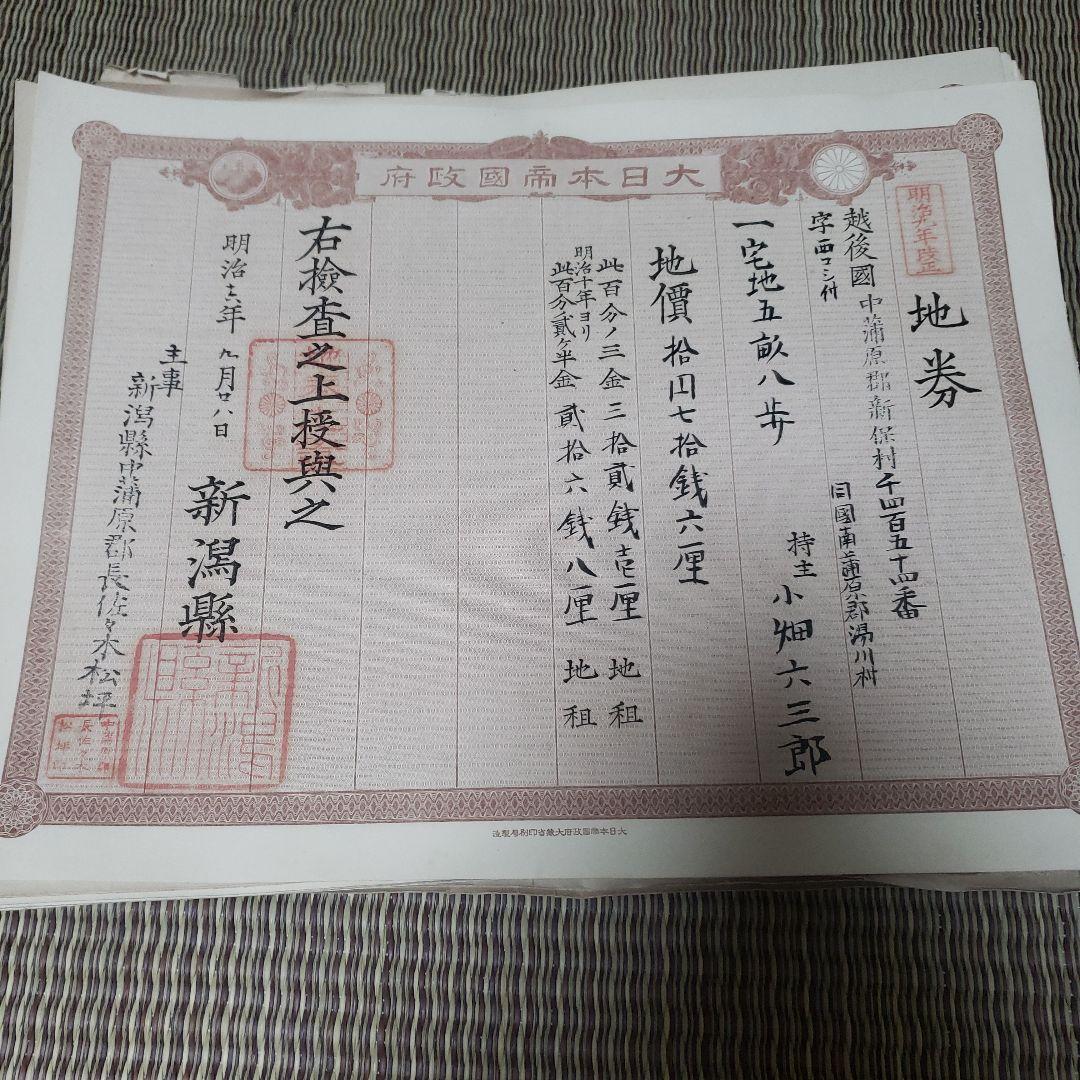 大日本帝國政府
明治九年改正
地券
越後國中蒲原郡新保村千四百五十四番
字西コシ付
同國南蒲原郡湯川村
一宅地五畝八歩
持主 小畑六三郎
地價拾円七拾銭六厘
此百分ノ三金三拾貳銭壱厘 地租
明治十年ヨリ
此百分ノ貳ケ半金貳拾六銭八厘 地租
右檢査之上授與之
九月廿八日
新潟縣
主事
新潟縣中蒲原郡長佐々木松坪
大日本帝國政府大藏省印刷局製造